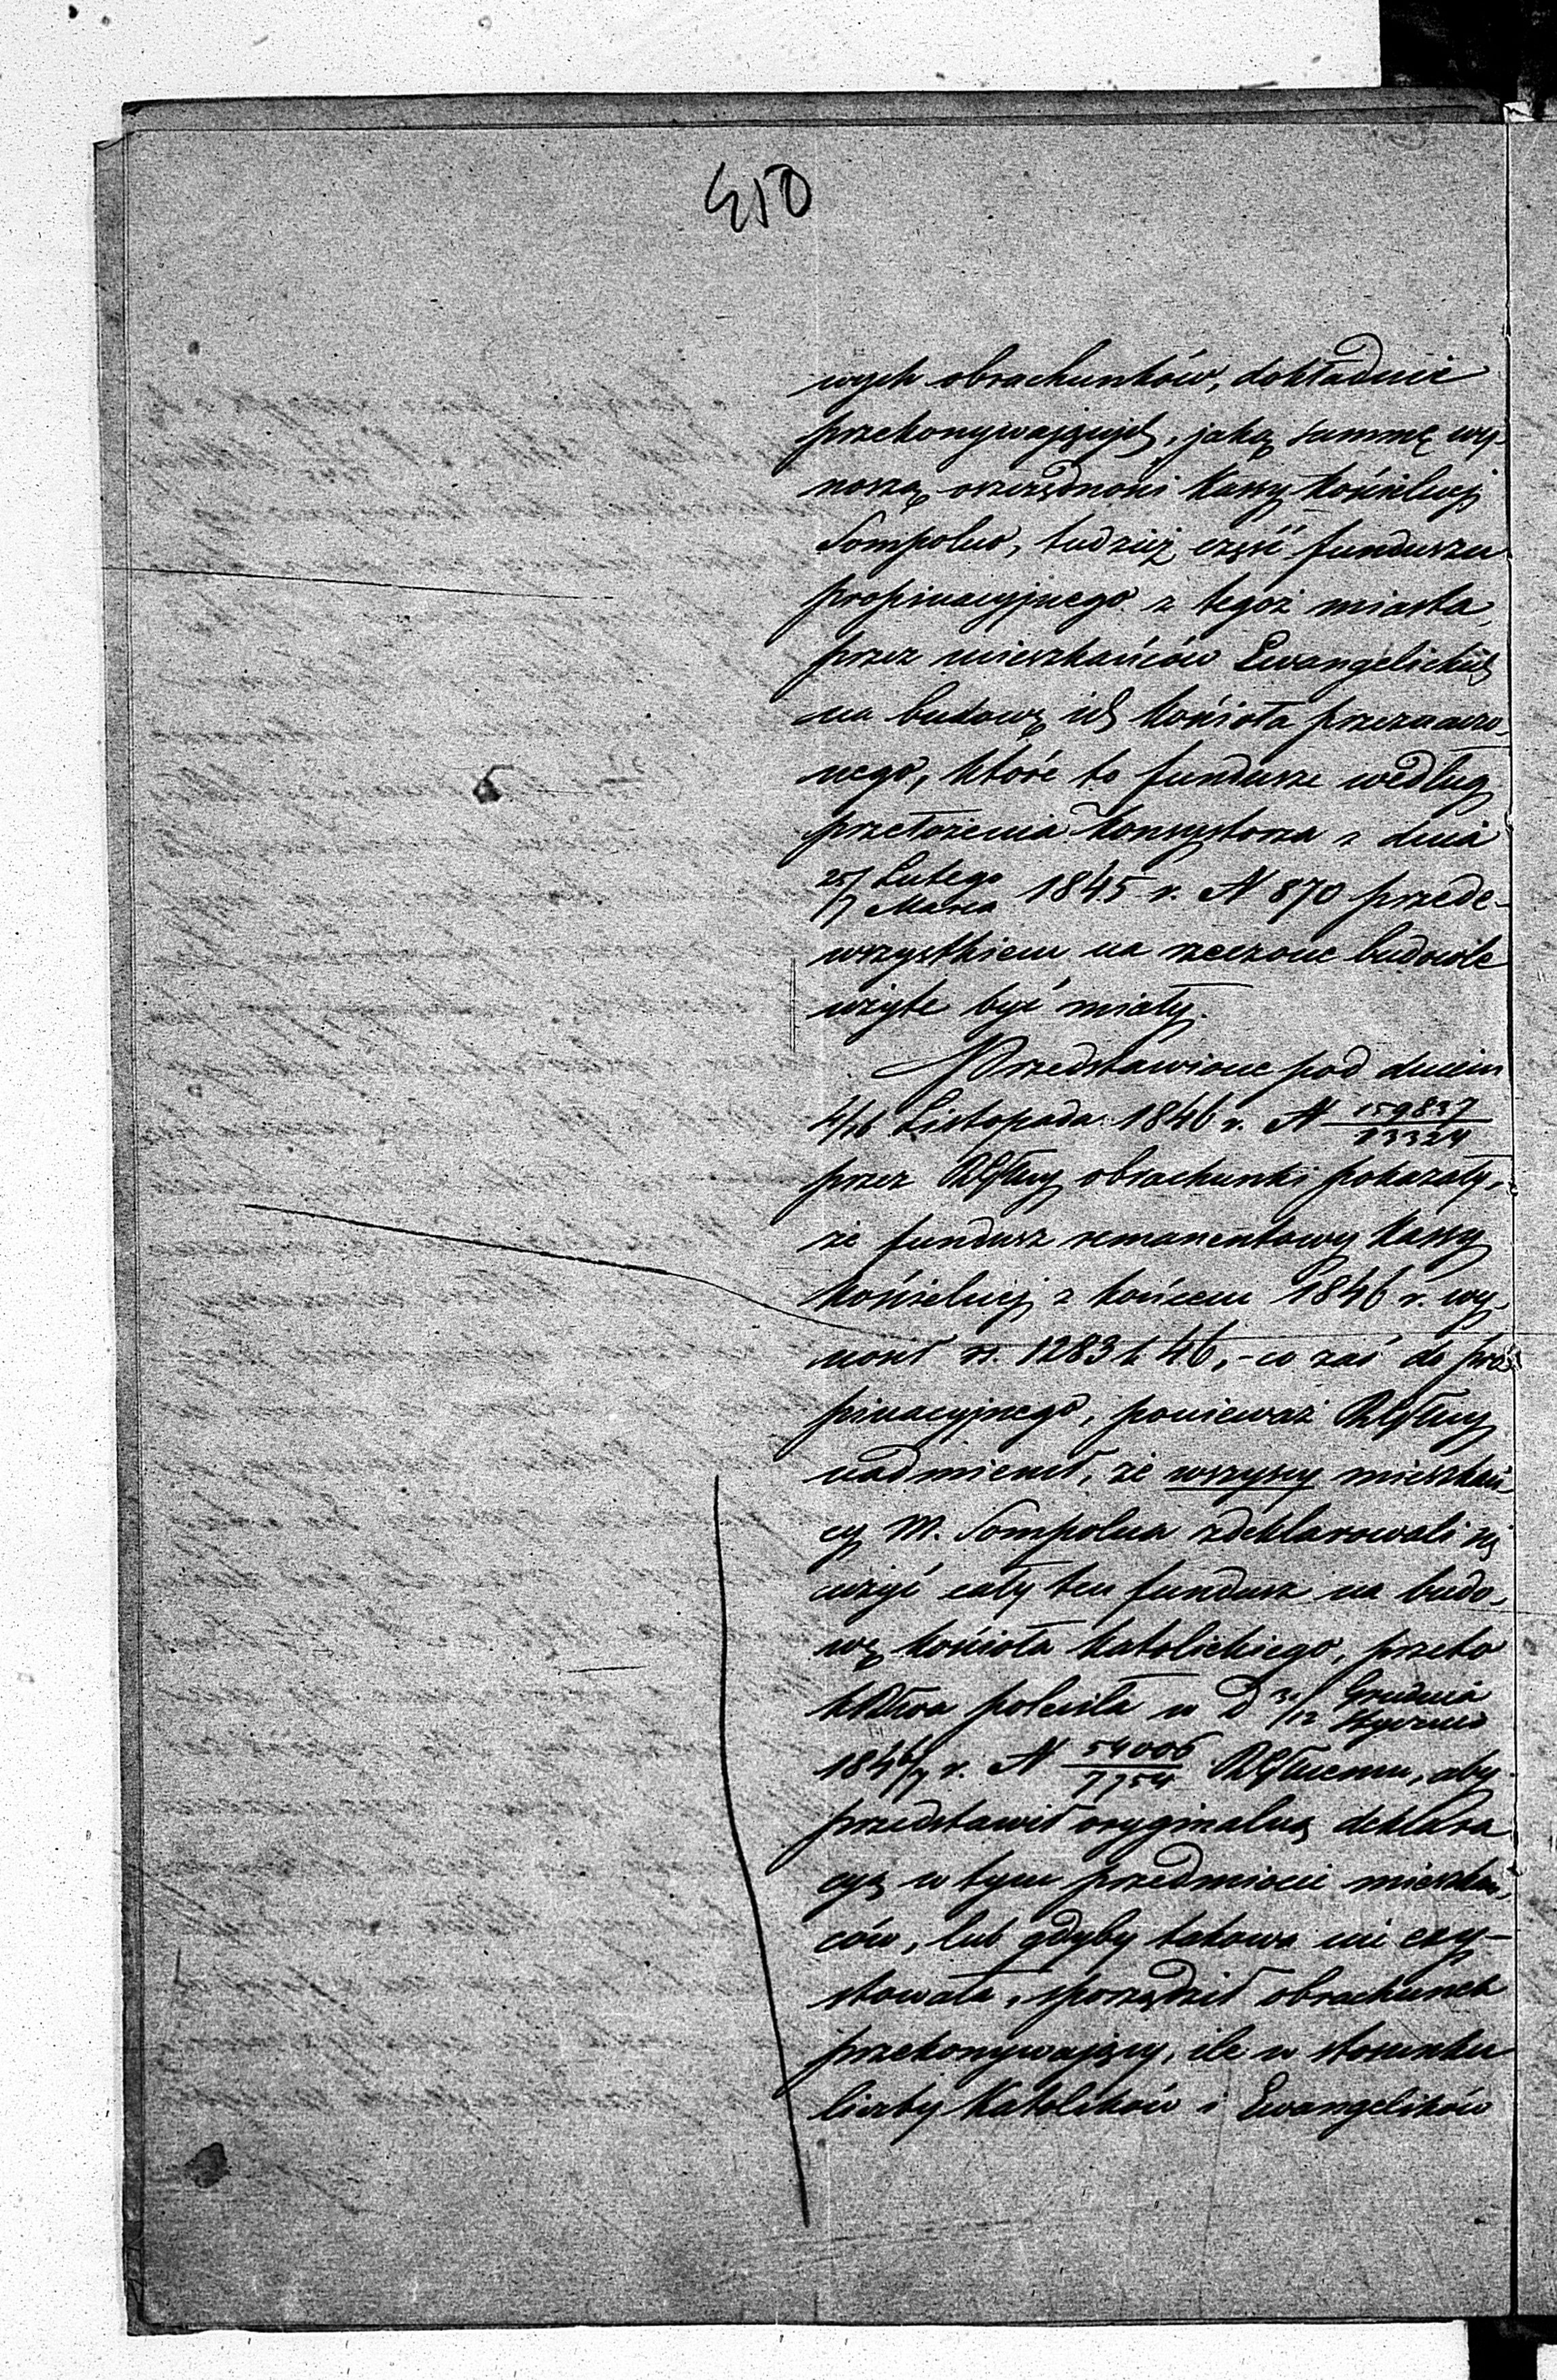 450
wych obrachunków, dokładnie
przekonywających, jaką summę wy-
noszą oszczędności Kassy Kościelnej
Sompolno, tudzież część funduszu
propinacyjnego z tegoż miasta,
przez mieszkańców Ewangelickich
na budowę ich Kościoła przeznaczo-
nego, które to fundusze według
przełożenia Konsystorza z dnia
25/7 Lutego/Marca 1845 r. N 870 przede-
wszystkiem na rzeczone budowle
użyte być miały.
Przedstawione pod dniem
4/16 Listopada 1846 r. N 159837/23324
przez obrachunki pokazały,
że fundusz remanentowy Kassy
Kościelnej z końcem 1846 r. wy-
nosił rs. 1283 k 46,- co zaś do pro-
pinacyjnego, ponieważ
nadmienił, że wszyscy mieszkań-
cy M. Sompolna zdeklarowali się
użyć cały ten fundusz na budo-
wę Kościoła Katolickiego, przeto
poleciła w D 31/12 Grudnia/Stycznia
1846/7 r. N 54006/ aby
przedstawił oryginalną deklara-
cyą w tym przedmiocie mieszkań-
ców, lub gdyby takowa nie egzy-
stowała, sporządził obrachunek
przekonywający, ile w stosunku
liczby Katolików i Ewangelików